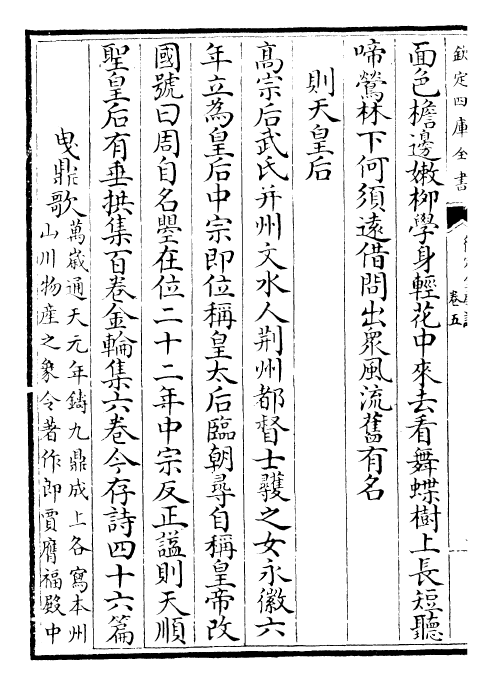 欽定四庫全書
卷五
面色檐邊嫩柳學身輕花中來去看舞蝶樹上長短聽
啼鶯林下何須遠借問出衆風流舊有名
則天皇后
高宗后武氏并州文水人荆州都督士彠之女永徽六
年立為皇后中宗即位稱皇太后臨朝尋自稱皇帝改
國號曰周自名曌在位二十二年中宗反正諡則天順
聖皇后有垂拱集百卷金輪集六卷今存詩四十六篇
曳鼎歌萬嵗通天元年鑄九鼎成上各寫本州
山川物產之象令著作郎賈膺福殿中